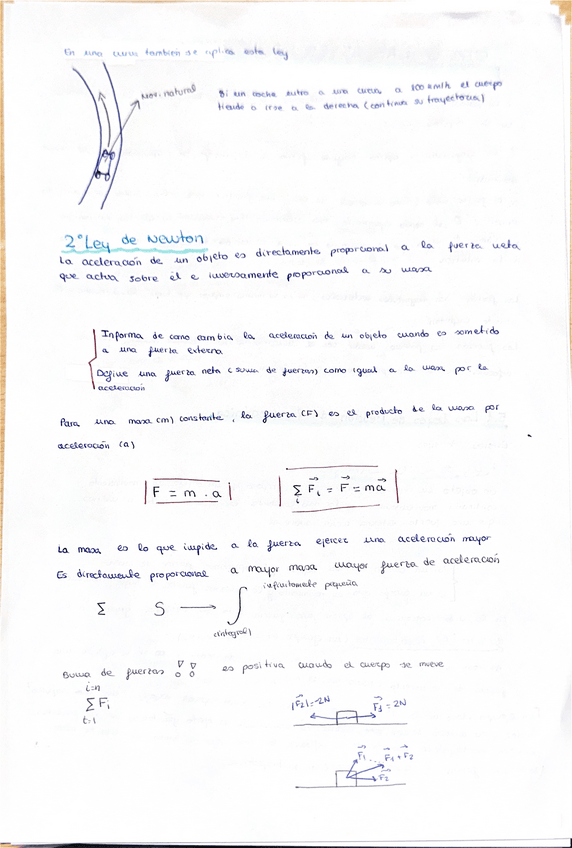 En una curva tambien se aplica esta ley
Mov. natural
Si un coche entra a una curva a 100 km/h el cuerpo
tiende a irse a la derecha (continua su trayectoria)
2º Ley de Newton
La aceleración de un objeto es directamente proporcional a la fuerza neta
que actua sobre él e inversamente proporcional a su masa
Informa de como cambia la aceleracion de un objeto cuando es sometido
a una fuerza externa
Define una fuerza neta (suma de fuerzas) como igual a la masa por la
aceleración
Para una masa (m) constante, la fuerza (F) es el producto de la masa por
aceleración (a)
F = m . a
∑ F⃗i = F⃗ = ma⃗
i
La masa es lo que impide a la fuerza ejercer una aceleración mayor
Es directamente proporcional a mayor masa mayor fuerza de aceleración
infinitamente pequeña
∑ S → ∫
(integral)
Suma de fuerzas es positiva cuando el cuerpo se mueve
i=n
∑ Fi
t=1
|F⃗2|=-2N F⃗1 = 2N
F⃗1 F⃗1 + F⃗2
F⃗2